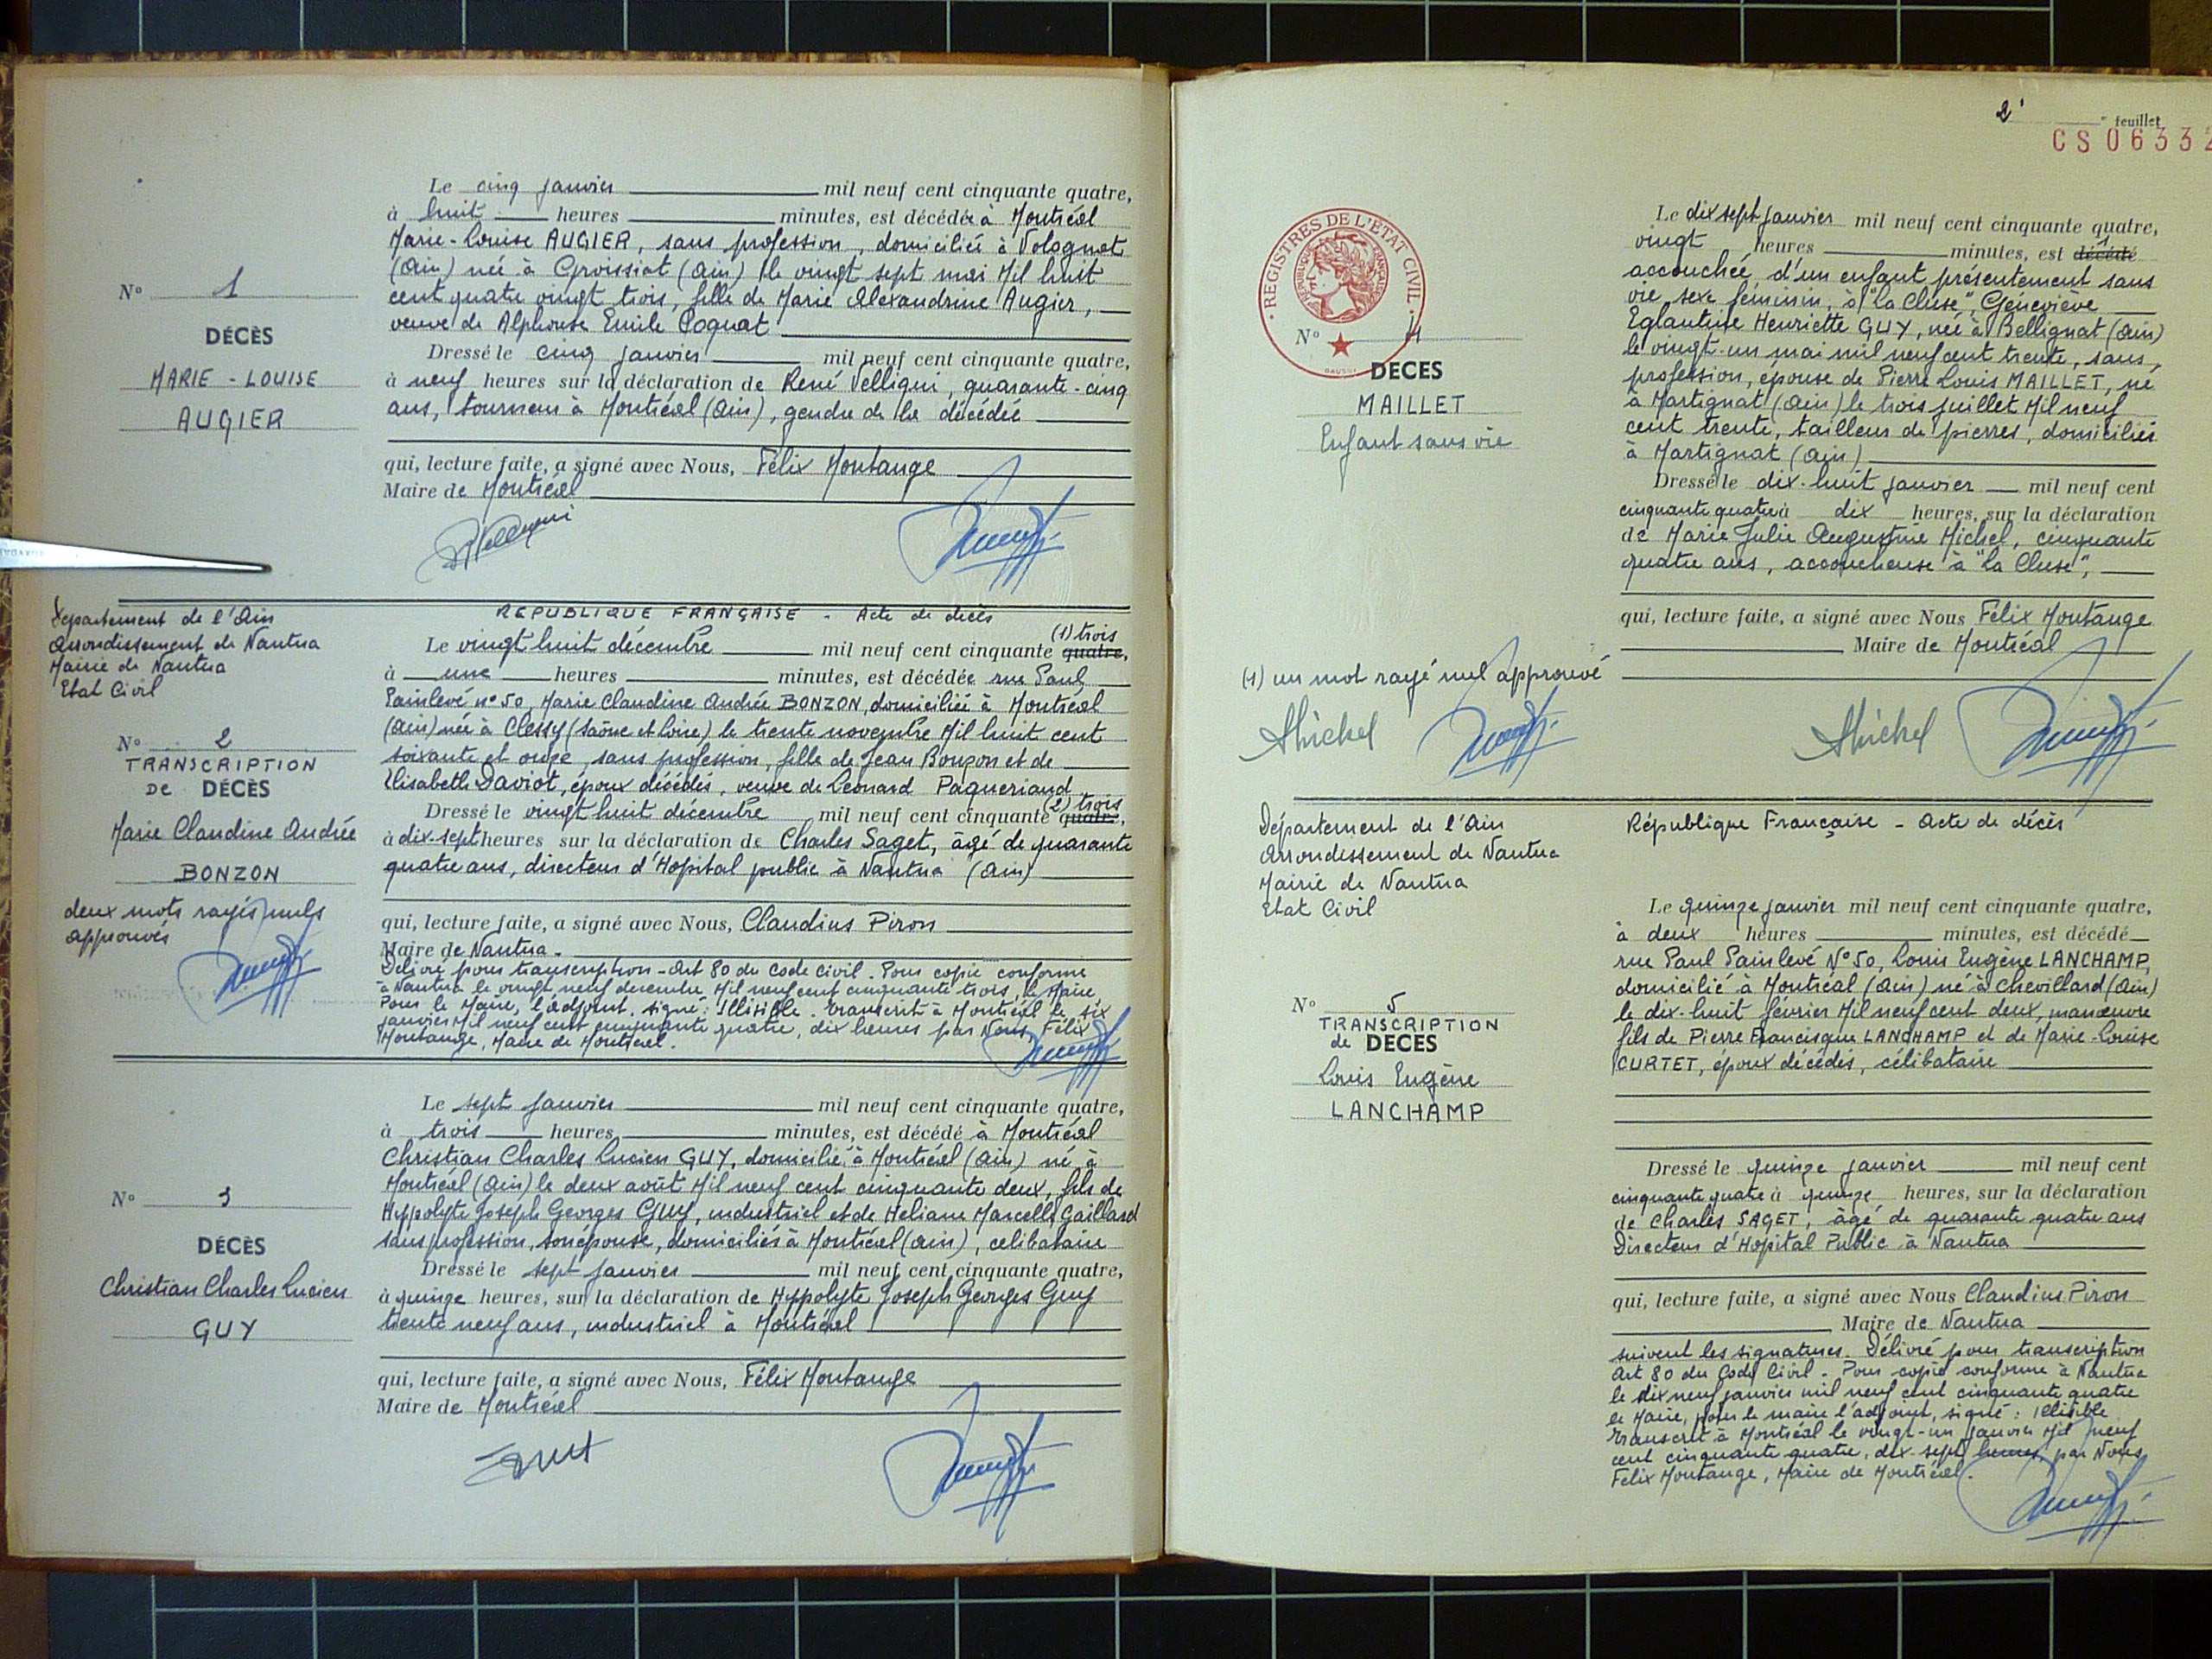 Le cinq janvier mil neuf cent cinquante quatre,
à huit heures minutes, est décédée à Montréal
Marie-Louise AUGIER, sans profession, domiciliée à Volognat
(Ain) née à Groissiat (Ain) le vingt sept mai Mil huit
cent quatre vingt trois, fille de Marie Alexandrine Augier,
veuve de Alphonse Emile Coquat
Dressé le cinq janvier mil neuf cent cinquante quatre,
à neuf heures sur la déclaration de René Pelligui, quarante-cinq
ans, tourneur à Montréal (Ain), gendre de la décédée
qui, lecture faite, a signé avec Nous, Félix Montange
Maire de Montréal
N° 1
DÉCÈS
MARIE-LOUISE
AUGIER
Département de l'Ain
Arrondissement de Nantua
Mairie de Nantua
Etat Civil
N° 2
TRANSCRIPTION
DE DÉCÈS
Marie Claudine Andrée
BONZON
deux mots rayés nuls
approuvés
REPUBLIQUE FRANÇAISE - Acte de décès
(1) trois
Le vingt huit décembre mil neuf cent cinquante quatre,
à une heures minutes, est décédée rue Paul
Painlevé n° 50, Marie Claudine Andrée BONZON, domiciliée à Montréal
(Ain) née à Clessy (Saône et Loire) le trente novembre Mil huit cent
soixante et onze, sans profession, fille de Jean Bonzon et de
Elisabeth Daviot, époux décédés, veuve de Léonard Paqueriaud
(2) trois
Dressé le vingt huit décembre mil neuf cent cinquante quatre,
à dix-sept heures sur la déclaration de Charles Saget, âgé de quarante
quatre ans, directeur d'Hopital public à Nantua (Ain)
qui, lecture faite, a signé avec Nous, Claudius Piron
Maire de Nantua.
Délivré pour transcription - Art 80 du Code Civil. Pour copie conforme
à Nantua le vingt neuf décembre Mil neuf cent cinquante trois, le Maire
Pour le Maire, l'adjoint, signé : Illisible. Transcrit à Montréal le six
janvier Mil neuf cent cinquante quatre, dix heures par Nous, Félix
Montange, Maire de Montréal.
Le sept janvier mil neuf cent cinquante quatre,
à trois heures minutes, est décédé à Montréal
Christian Charles Lucien GUY, domicilié à Montréal (Ain) né à
Montréal (Ain) le deux août Mil neuf cent cinquante deux, fils de
Hippolyte Joseph Georges Guy, industriel et de Héliane Marcelle Gaillard
sans profession, son épouse, domiciliés à Montréal (Ain), célibataire
Dressé le sept janvier mil neuf cent cinquante quatre,
à quinze heures, sur la déclaration de Hippolyte Joseph Georges Guy
trente neuf ans, industriel à Montréal
qui, lecture faite, a signé avec Nous, Félix Montange
Maire de Montréal
N° 3
DÉCÈS
Christian Charles Lucien
GUY
2e feuillet
CS 0633
REGISTRES DE L'ÉTAT CIVIL
N° 4
DÉCÈS
MAILLET
Enfant sans vie
Le dix sept janvier mil neuf cent cinquante quatre,
vingt heures minutes, est décédé
accouchée d'un enfant présentement sans
vie, sexe féminin, à "La Cluse", Géneviève
Eglantine Henriette GUY, née à Bellignat (Ain)
le vingt-un mai mil neuf cent trente, sans
profession, épouse de Pierre Louis MAILLET, né
à Martignat (Ain) le trois juillet Mil neuf
cent trente, tailleur de pierres, domiciliés
à Martignat (Ain)
Dressé le dix-huit janvier mil neuf cent
cinquante quatre à dix heures, sur la déclaration
de Marie Julie Augustine Michel, cinquante
quatre ans, accoucheuse à "La Cluse",
qui, lecture faite, a signé avec Nous Félix Montange
Maire de Montréal
(1) un mot rayé nul approuvé
Michel
Michel
Département de l'Ain
Arrondissement de Nantua
Mairie de Nantua
Etat Civil
N° 5
TRANSCRIPTION
de DÉCÈS
Louis Eugène
LANCHAMP
République Française - Acte de décès
Le quinze janvier mil neuf cent cinquante quatre,
à deux heures minutes, est décédé
rue Paul Painlevé N° 50, Louis Eugène LANCHAMP,
domicilié à Montréal (Ain) né à Chevillard (Ain)
le dix-huit février Mil neuf cent deux, manœuvre
fils de Pierre Francisque LANCHAMP et de Marie-Louise
CURTET, époux décédés, célibataire
Dressé le quinze janvier mil neuf cent
cinquante quatre à quinze heures, sur la déclaration
de Charles SAGET, âgé de quarante quatre ans
Directeur d'Hopital Public à Nantua
qui, lecture faite, a signé avec Nous Claudius Piron
Maire de Nantua
suivent les signatures. Délivré pour transcription
Art 80 du Code Civil. Pour copie conforme à Nantua
le dix neuf janvier mil neuf cent cinquante quatre
le Maire, pour le maire l'adjoint, signé : illisible
Transcrit à Montréal le vingt-un janvier Mil neuf
cent cinquante quatre, dix-sept heures, par Nous
Félix Montange, Maire de Montréal.